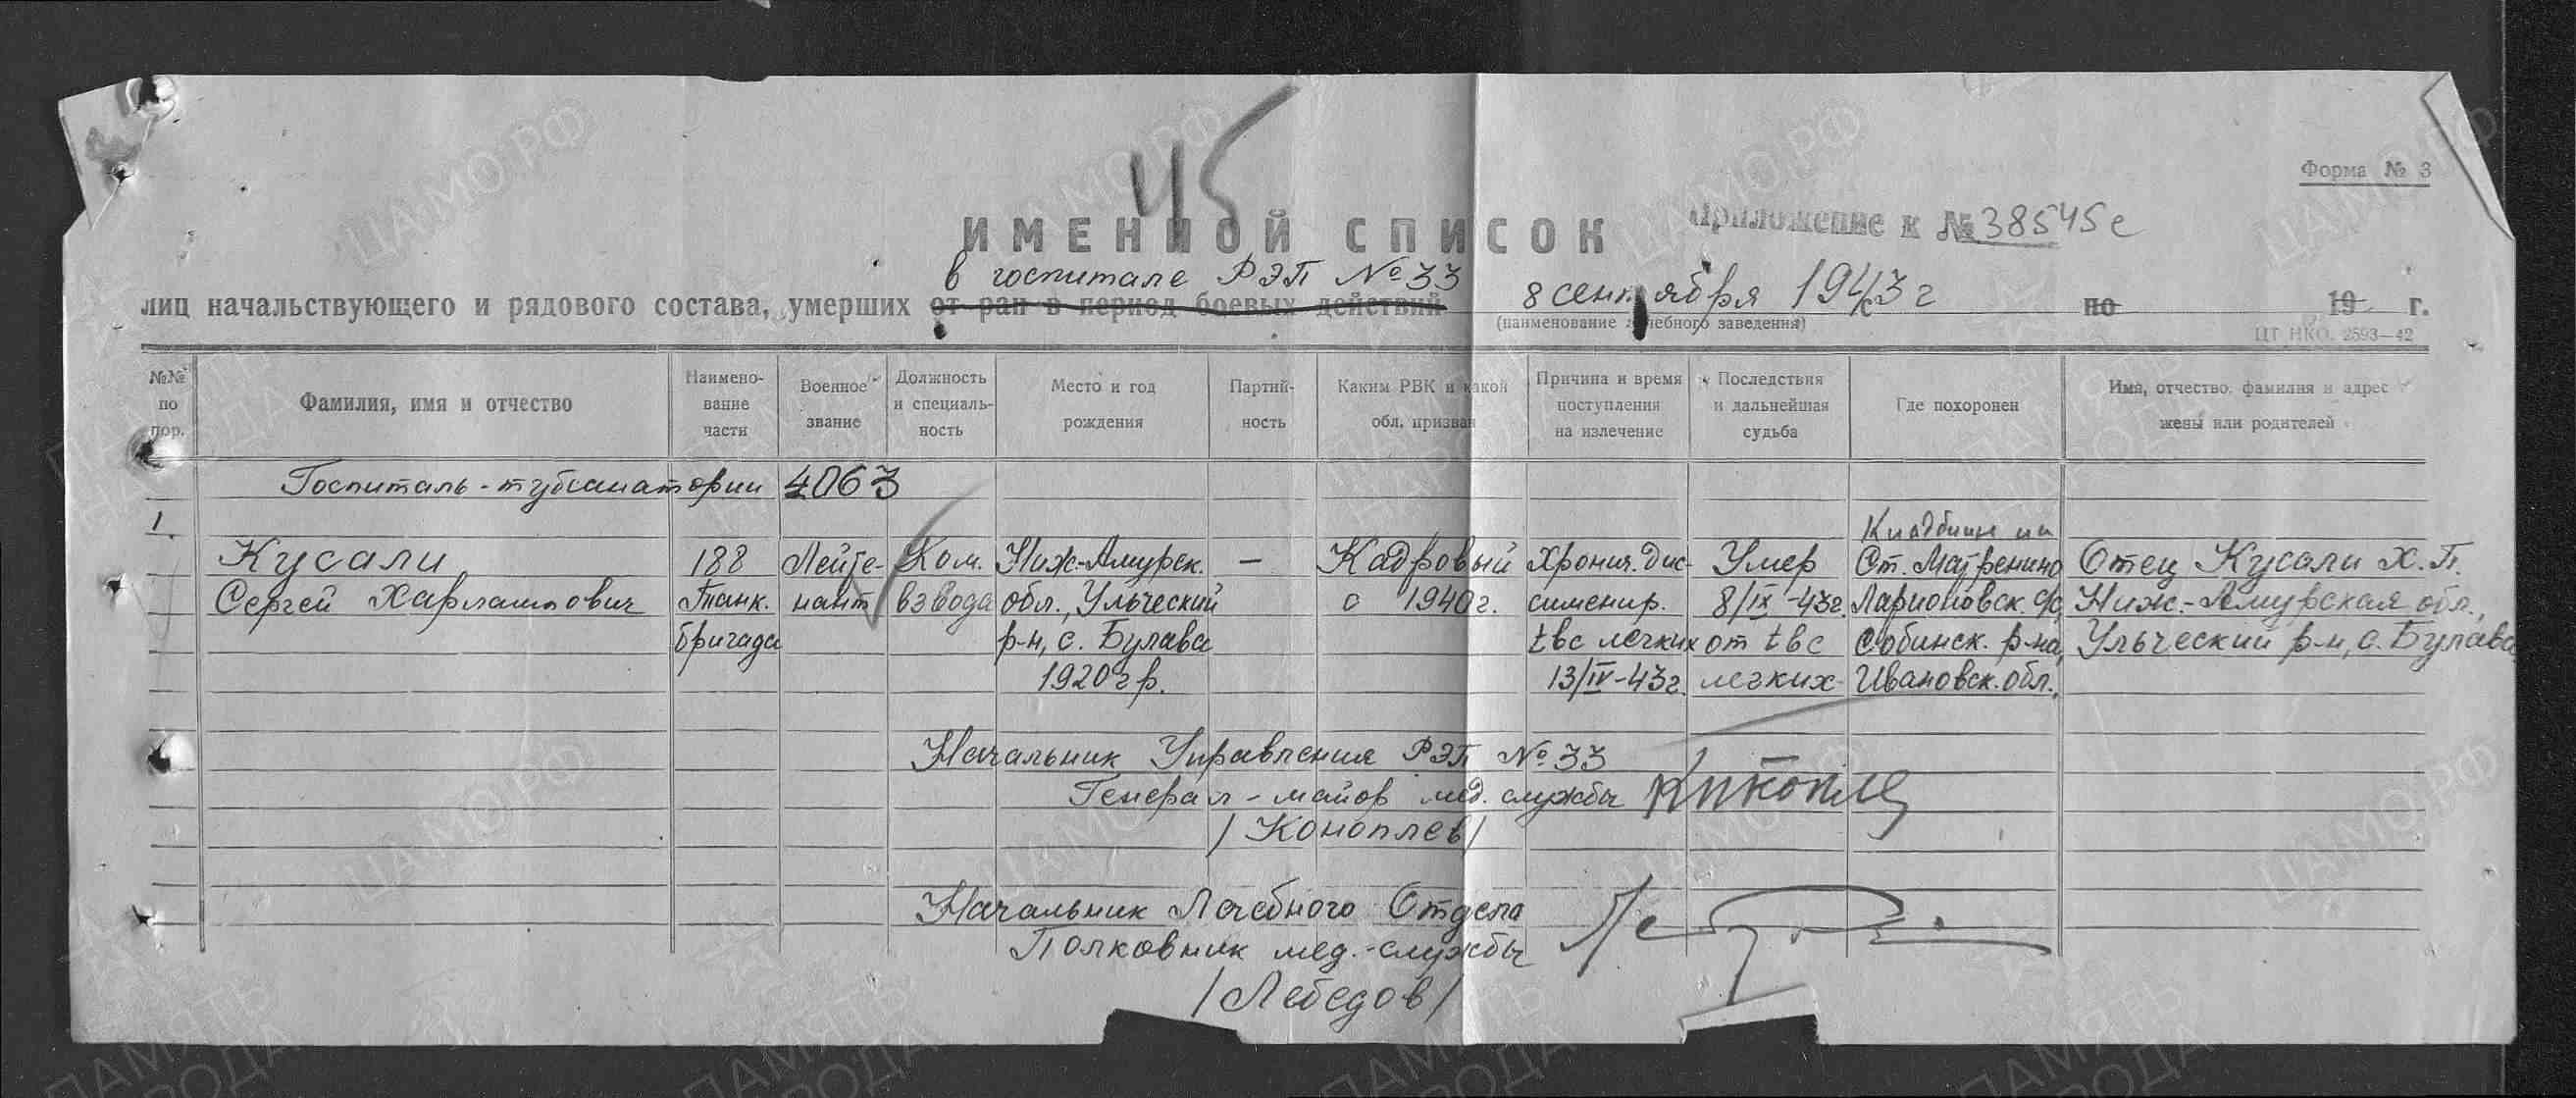 45
Форма № 3
ИМЕННОЙ СПИСОК
Приложение к № 38545с
в госпитале РЭП № 33
лиц начальствующего и рядового состава, умерших от ран в период боевых действий 8 сентября 1943 г с по 19 г.
(наименование лечебного заведения)
ЦТ НКО. 2593—42
№№ по пор.
Фамилия, имя и отчество
Наимено-
вание
части
Военное
звание
Должность
и специаль-
ность
Место и год
рождения
Партий-
ность
Каким РВК и какой
обл. призван
Причина и время
поступления
на излечение
Последствия
и дальнейшая
судьба
Где похоронен
Имя, отчество, фамилия и адрес
жены или родителей
Госпиталь-тубсанатории 4063
1.
Кусали
Сергей Харлампович
188
Танк.
бригада
Лейте-
нант
Ком.
взвода
Ниж-Амурск.
обл., Ульческий
р-н, с. Булава
1920 г р.
—
Кадровый
с 1940 г.
Хронич. дис-
сименир.
tbc легких
13/IV-43 г.
Умер
8/IX-43 г.
от tbc
легких
Кладбище на
Ст. Маренино
Ларионовск. с/с,
Собинск. р-на,
Ивановск. обл.,
Отец Кусали Х. П.
Ниж.-Амурская обл.,
Ульческий р-н, с. Булава
Начальник Управления РЭП № 33
Генерал-майор мед. службы
/Коноплев/
Начальник Лечебного Отдела
Полковник мед.-службы
/Лебедов/
ЦАМО.РФ
ПАМЯТЬ
НАРОДА